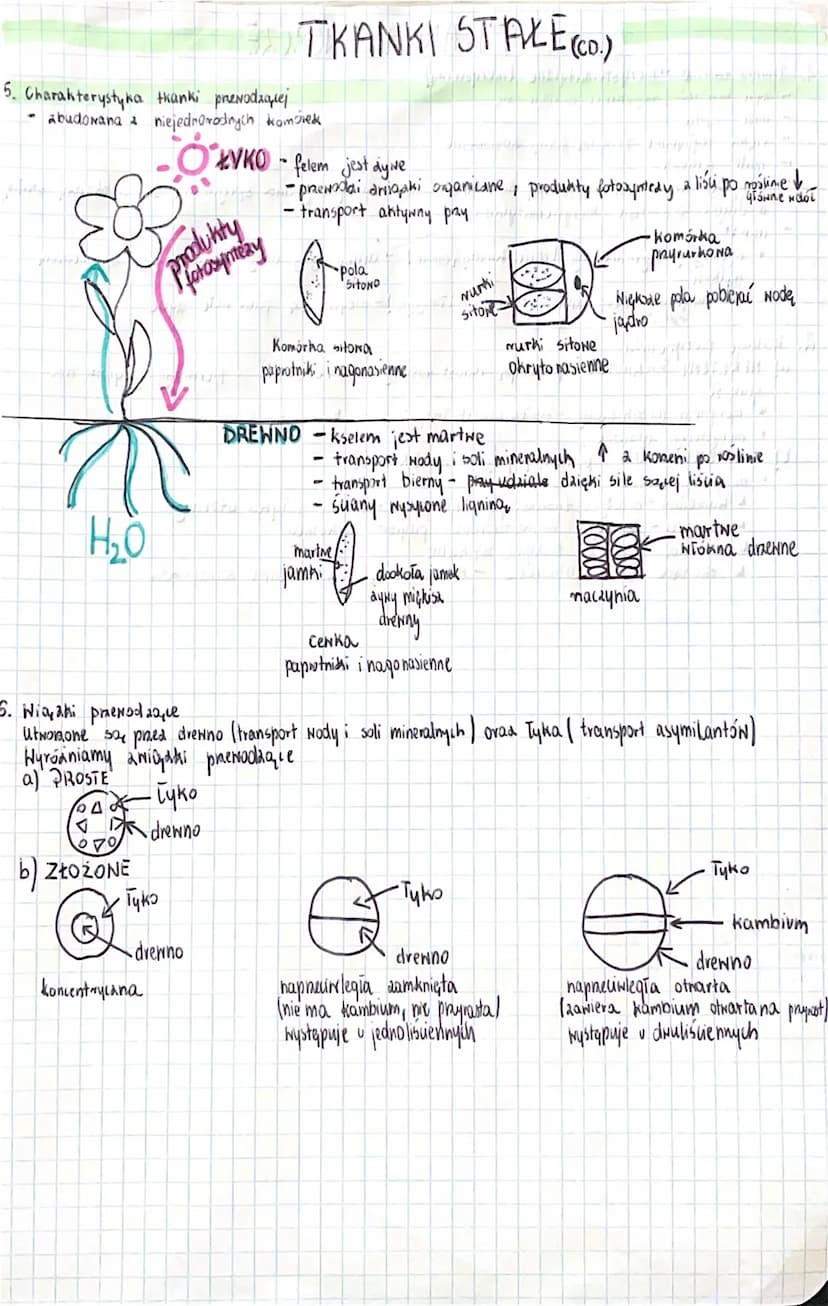 TKANKI STAŁE (CD.)
5. Charakterystyka tkanki przewodzącej
- zbudowana z niejednorodnych komórek
ŁYKO - felem jest żywe
- przewodzi związki organiczne, produkty fotosyntezy z liści po roślinie ↓
główne wdół
- transport aktywny przy
produkty
fotosyntezy
pola
sitowo
Komórka sitowa
paprotniki i nagonasienne
rurki
sitowe
komórka
przyrurkowa
Większe pola pobierać wodę
jądro
rurki sitowe
okrytonasienne
DREWNO - kselem jest martwe
- transport wody i soli mineralnych ↑ z korzeni po roślinie
- transport bierny - przy udziale dzięki sile ssącej liścia
- ściany wysycone ligniną
H₂O
martwe
jamki
dookoła jamek
żywy miękisz
drewny
cewka
paprotniki i nagonasienne
martwe
włókna drzewne
naczynia
6. Wiązki przewodzące
Utworzone są przed drewno (transport wody i soli mineralnych) oraz Łyka (transport asymilantów)
Wyróżniamy związki przewodzące
a) PROSTE
Łyko
drewno
b) ZŁOŻONE
Łyko
drewno
koncentryczna
Łyko
drewno
naprzeciwległa zamknięta
(nie ma kambium, nie przyrasta)
występuje u jednoliściennych
Łyko
kambium
drewno
naprzeciwległa otwarta
(zawiera kambium otwarta na przyrost)
występuje u dwuliściennych